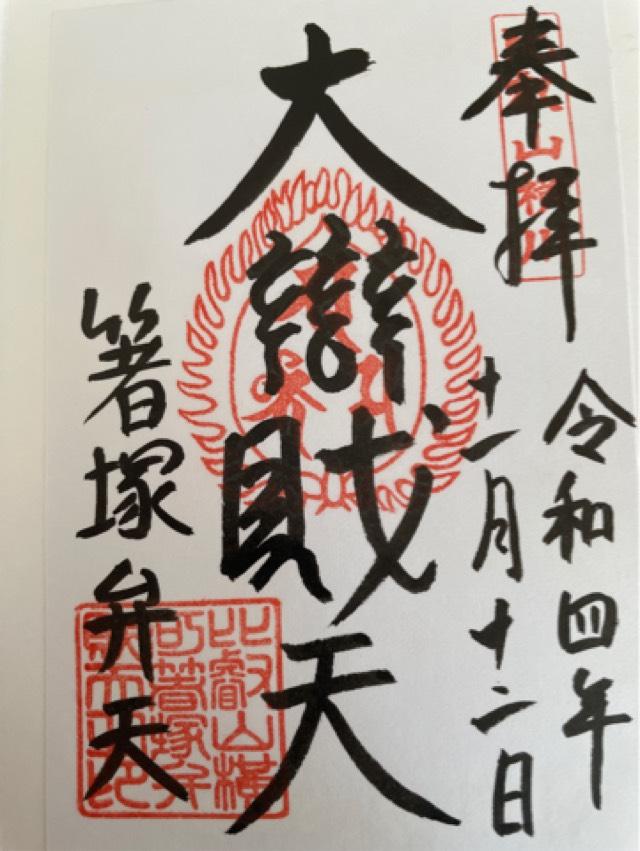 奉拝
令和四年
十一月十二日
大辯財天
箸塚弁天
比叡山横